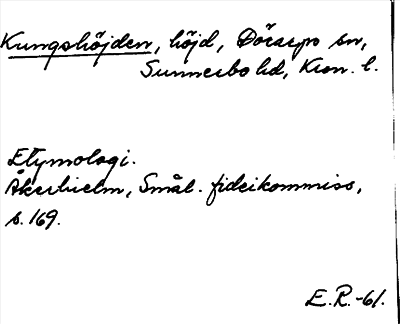 Kungshöjden, höjd, Dörarps sn,
Sunnerbo hd, Kron. l.
Etymologi.
Åkerhielm, Smål. fideikommiss,
s. 169.
E.R.-61.